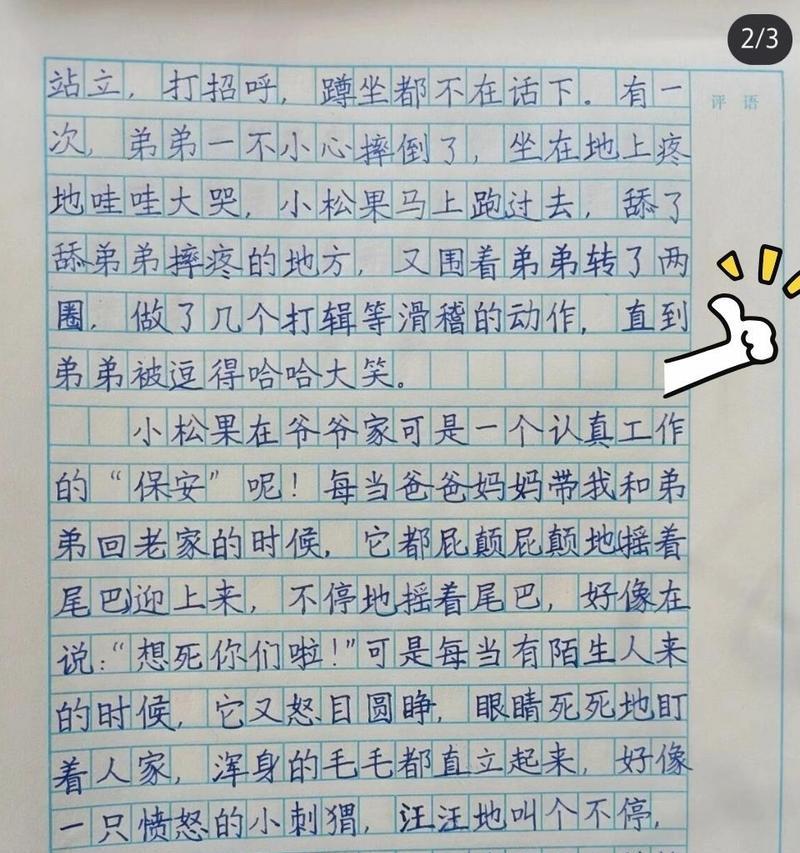 2/3
评 语
站立，打招呼，蹲坐都不在话下。有一
次，弟弟一不小心摔倒了，坐在地上疼
地哇哇大哭，小松果马上跑过去，舔了
舔弟弟摔疼的地方，又围着弟弟转了两
圈，做了几个打辑等滑稽的动作，直到
弟弟被逗得哈哈大笑。
小松果在爷爷家可是一个认真工作
的“保安”呢！每当爸爸妈妈带我和弟
弟回老家的时候，它都屁颠屁颠地摇着
尾巴迎上来，不停地摇着尾巴，好像在
说：“想死你们啦！”可是每当有陌生人来
的时候，它又怒目圆睁，眼睛死死地盯
着人家，浑身的毛毛都直立起来，好像
一只愤怒的小刺猬，汪汪地叫个不停，